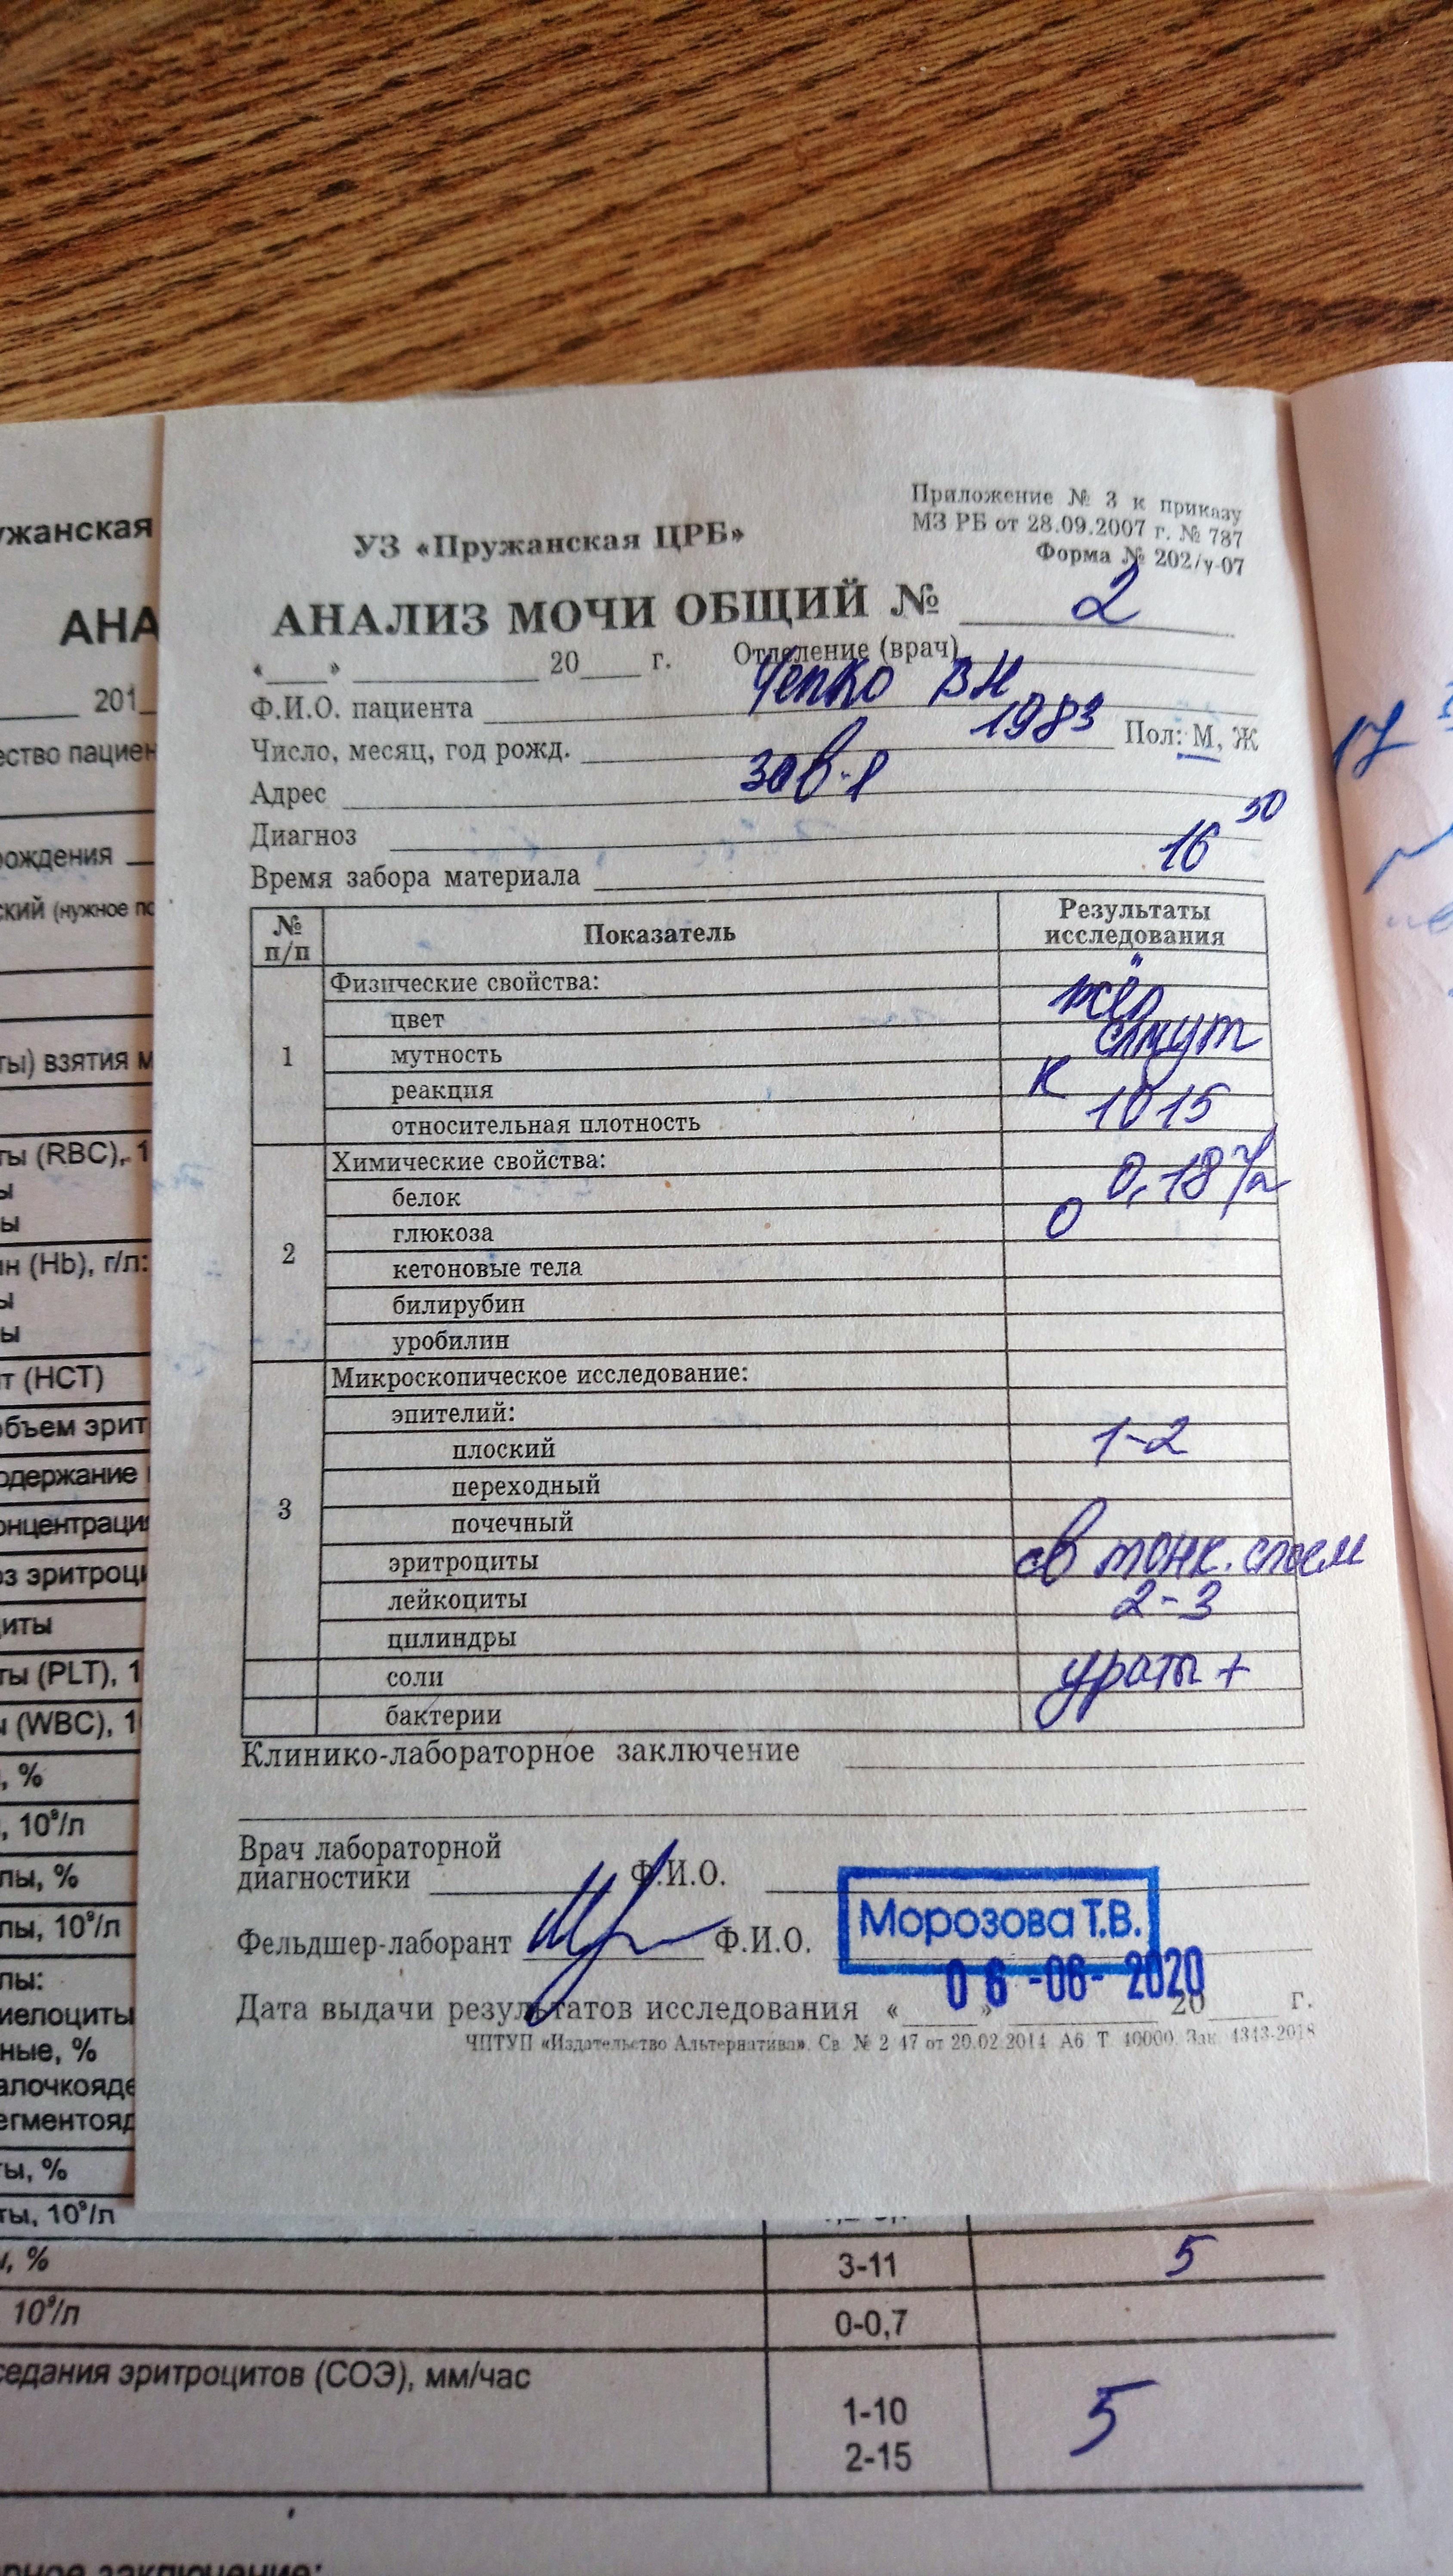 УЗ «Пружанская ЦРБ»
Приложение № 3 к приказу
МЗ РБ от 28.09.2007 г. № 787
Форма № 202/у-07
АНАЛИЗ МОЧИ ОБЩИЙ № 2
«___» ________ 20___ г. Отделение (врач)
Ф.И.О. пациента Чепко ВН
Число, месяц, год рожд. 1983 Пол: М, Ж
Адрес зав-я
Диагноз
Время забора материала 16 30
№ п/п Показатель Результаты исследования
1 Физические свойства:
цвет жёл
мутность сл мут
реакция к
относительная плотность 1015
2 Химические свойства:
белок 0,18 г/л
глюкоза 0
кетоновые тела
билирубин
уробилин
3 Микроскопическое исследование:
эпителий:
плоский 1-2
переходный
почечный
эритроциты св тонк. слоем
лейкоциты 2-3
цилиндры
соли ураты +
бактерии
Клинико-лабораторное заключение
Врач лабораторной
диагностики Ф.И.О.
Фельдшер-лаборант Ф.И.О. Морозова Т.В.
Дата выдачи результатов исследования «___» 20 г.
06-06-2020
ЧПТУП «Издательство Альтернатива». Св. № 2/47 от 20.02.2014 А6 Т. 40000. Зак. 4343-2018
ужанская
АНА
201
ество пациен
рождения
ский (нужное по
ты) взятия м
ты (RBC), 1
ы
ы
ин (Hb), г/л:
ы
ы
т (HCT)
объем эрит
одержание
онцентраци
оз эритроци
циты
ты (PLT), 1
ы (WBC), 1
, %
, 10⁹/л
лы, %
лы, 10⁹/л
лы:
иелоциты
ные, %
алочкояде
егментояд
ты, %
ты, 10⁹/л
, % 3-11 5
10⁹/л 0-0,7
седания эритроцитов (СОЭ), мм/час
1-10
2-15
5
рное заключение:
17